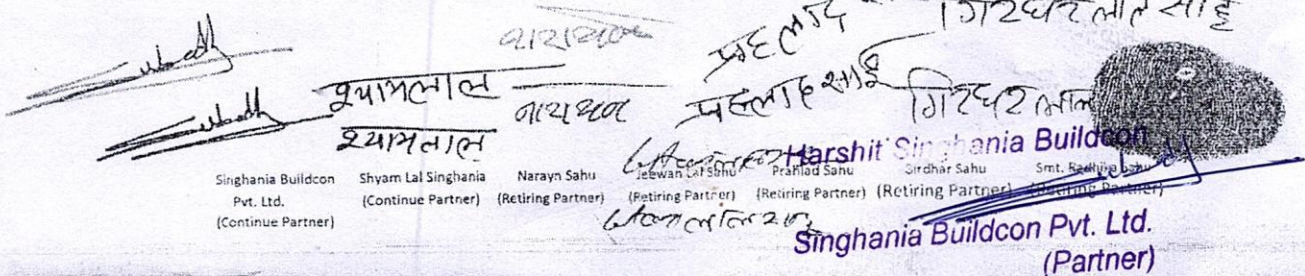 नारायण प्रहलाद गिरधर लाल साहू
श्यामलाल नारायण प्रहलाद साहू गिरधर लाल
श्यामलाल
Harshit Singhania Buildcon
Singhania Buildcon Pvt. Ltd. (Continue Partner)
Shyam Lal Singhania (Continue Partner)
Narayn Sahu (Retiring Partner)
Jeewan Lal Sahu (Retiring Partner)
Prahlad Sahu (Retiring Partner)
Girdhar Sahu (Retiring Partner)
Smt. Radhika Sahu (Retiring Partner)
Singhania Buildcon Pvt. Ltd.
(Partner)